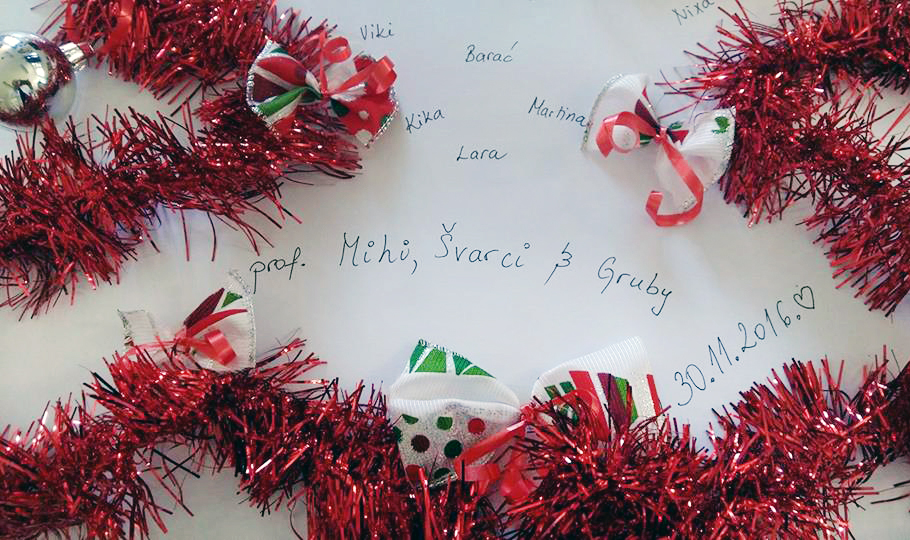 Nixa
Viki
Barać
Kika
Martina
Lara
prof. Mihi, Švarci & Gruby
30.11.2016.♡